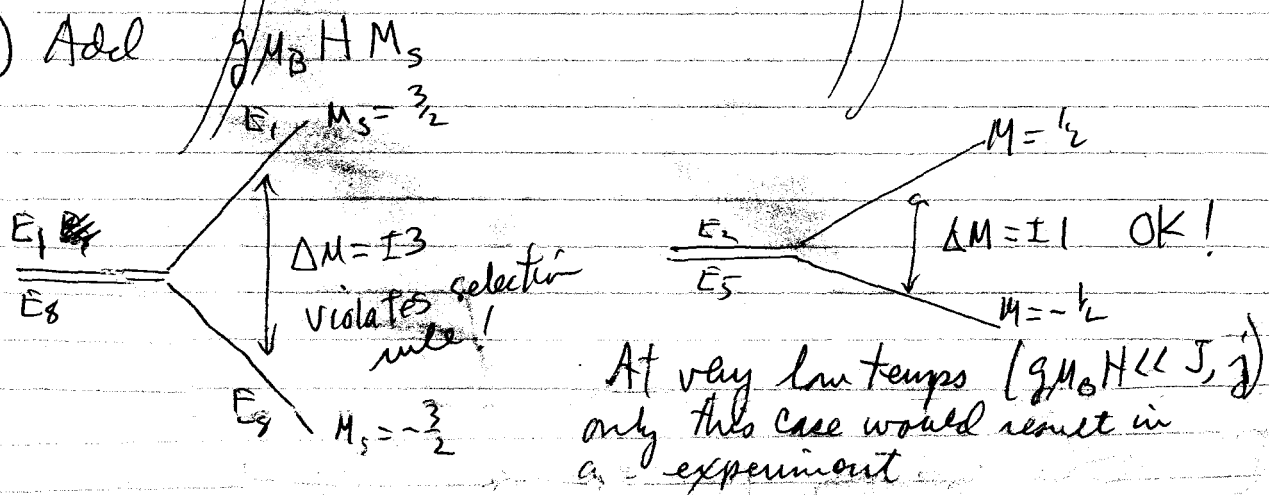 ) Add gμ_B H M_s
E₁ M_s = 3/2
M = 1/2
E₁
E₈
ΔM = ±3
violates selection
rule!
E₂
E₅
ΔM = ±1 OK!
M = -1/2
E₈ M_s = -3/2
At very low temps (gμ_B H << J, j)
only this case would result in
a experiment